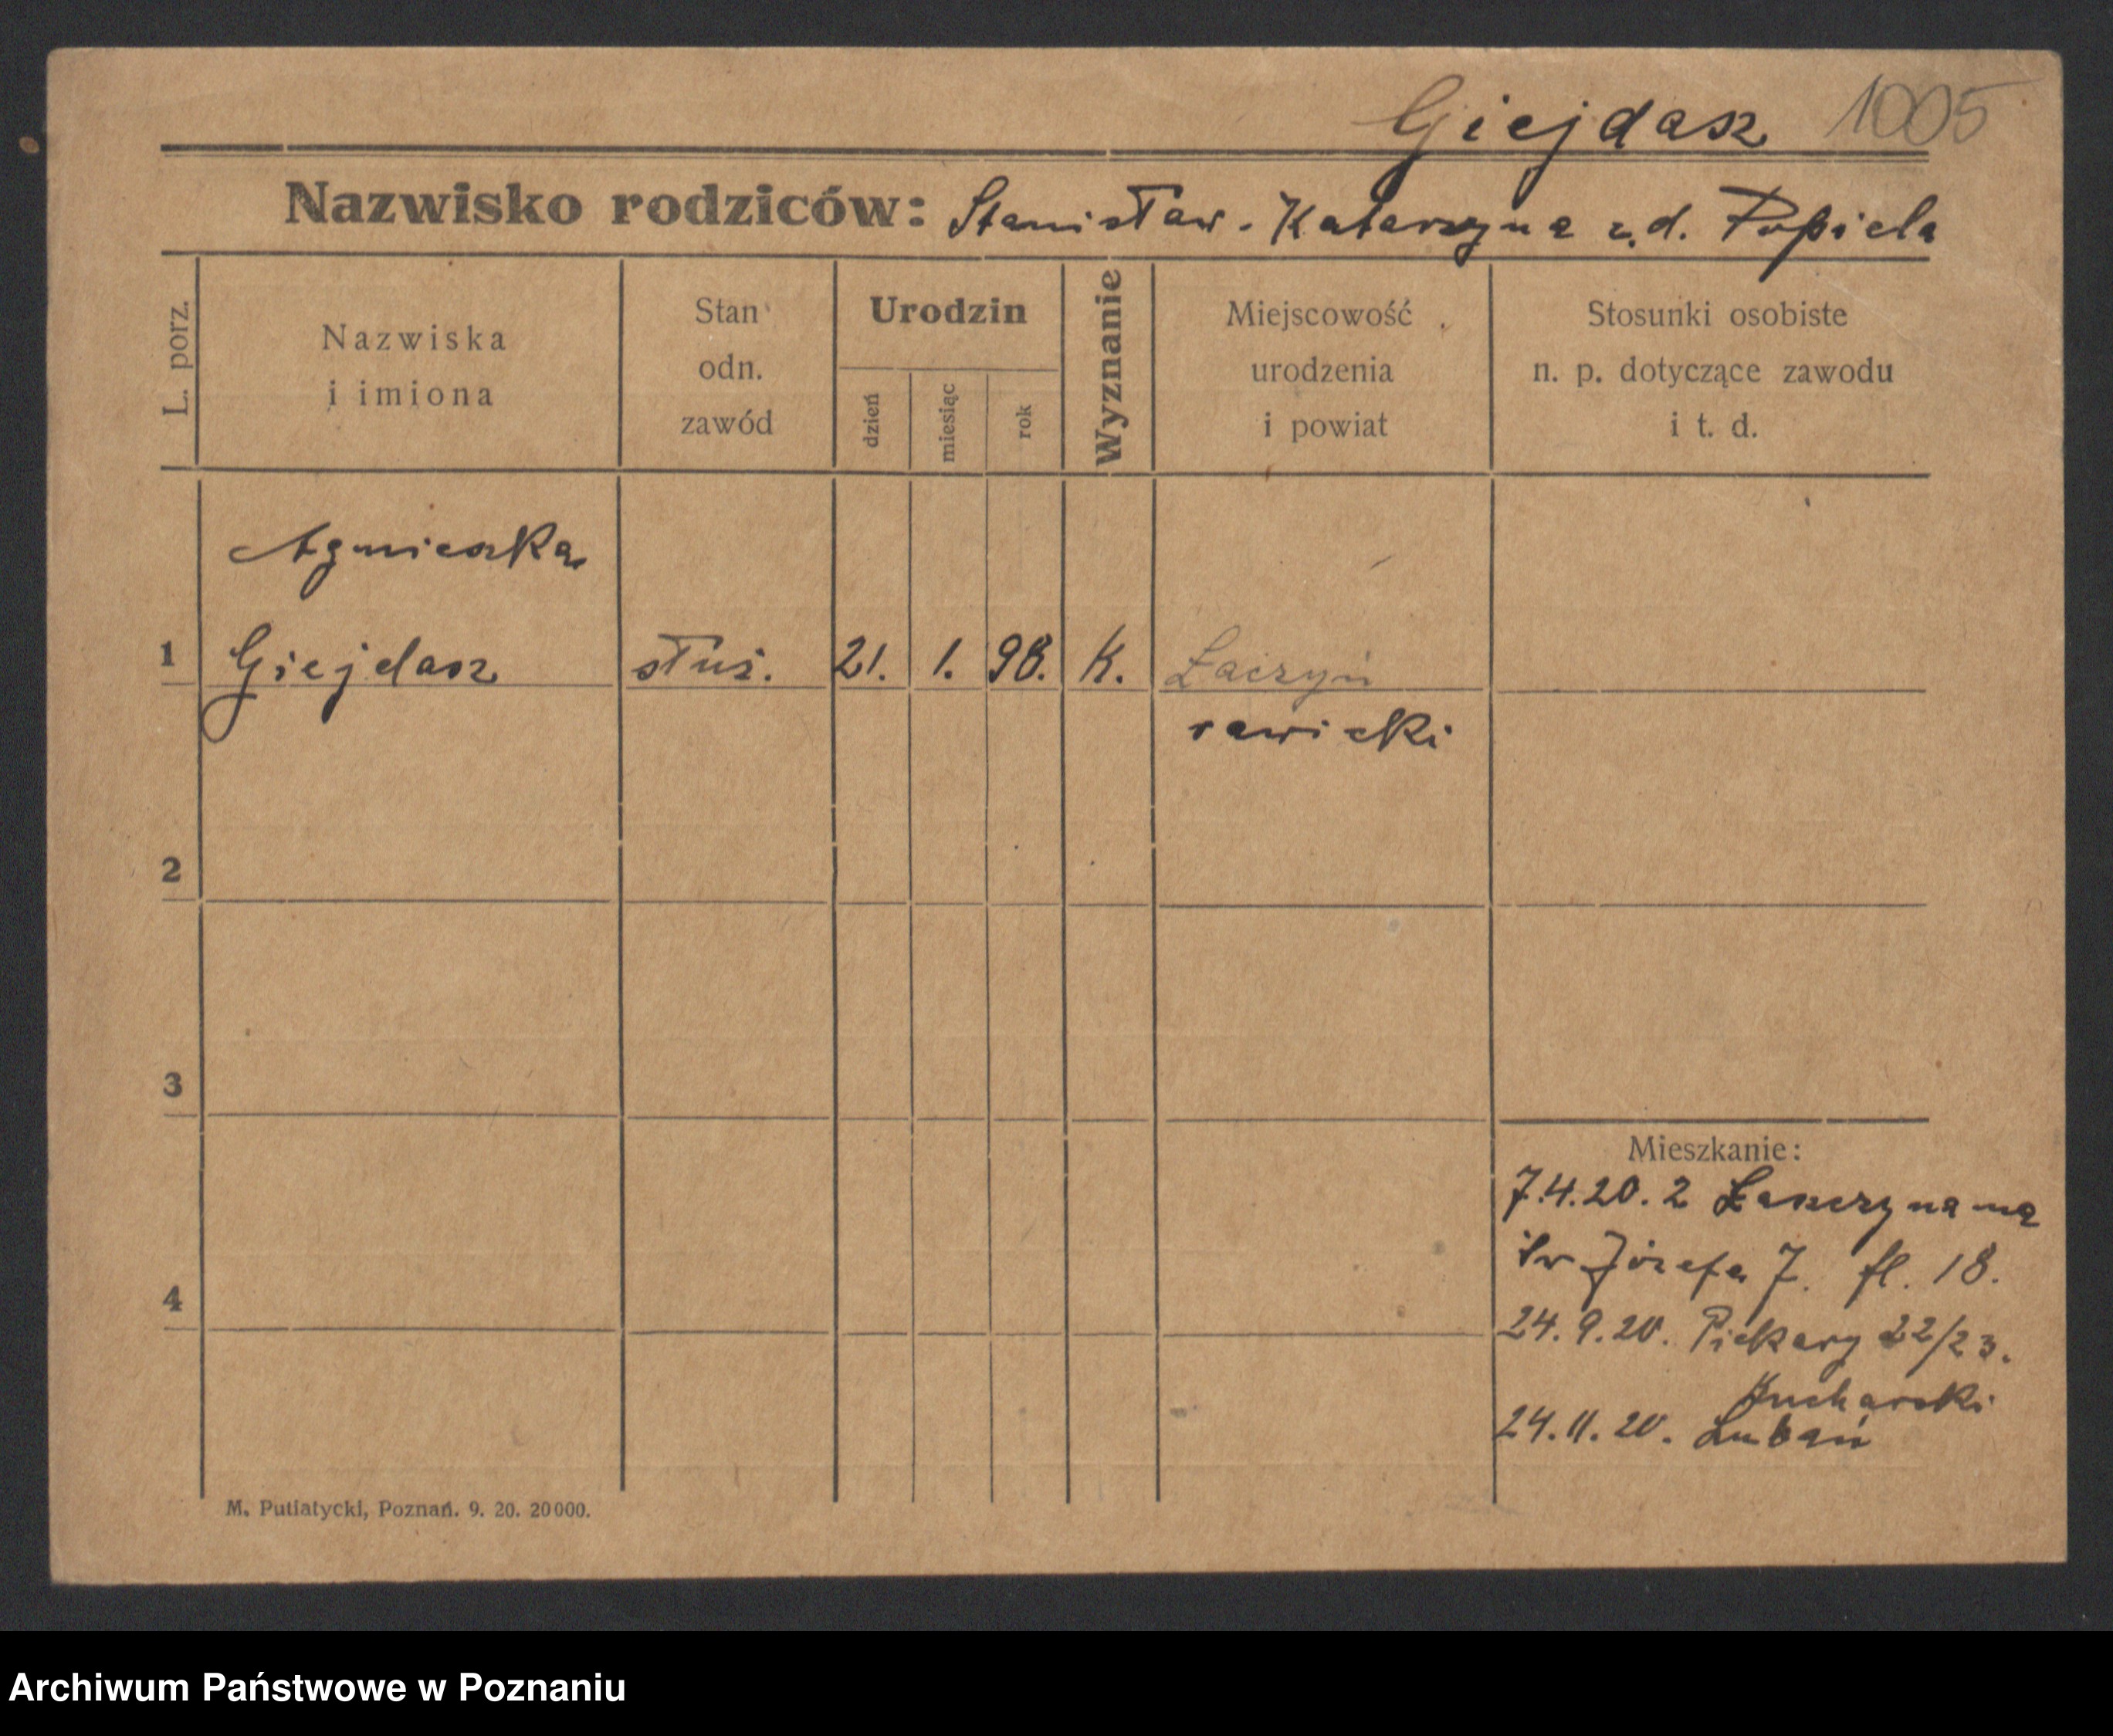 Giejdasz 1005
Nazwisko rodziców: Stanisław - Katarzyna z.d. Popiela
L. porz.
Nazwiska
i imiona
Stan
odn.
zawód
Urodzin
dzień
miesiąc
rok
Wyznanie
Miejscowość
urodzenia
i powiat
Stosunki osobiste
n. p. dotyczące zawodu
i t. d.
Agnieszka
1 Giejdasz służ. 21. 1. 98. K.
rawicki
2
3
4
Mieszkanie:
7.4.20. 2
św Józefa 7. fl. 18.
24.9.20. Piekary 22/23.
Kucharski
24.11.20. Lubań
M. Putiatycki, Poznań. 9. 20. 20000.
Archiwum Państwowe w Poznaniu